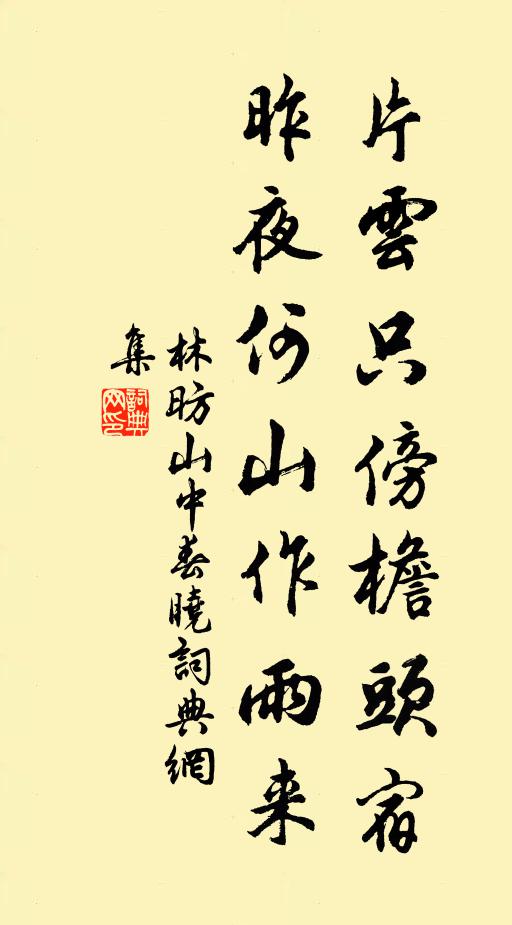 片雲只傍檐頭宿
昨夜何山作雨来
林昉山中春曉詞典網
集
詞典
网印